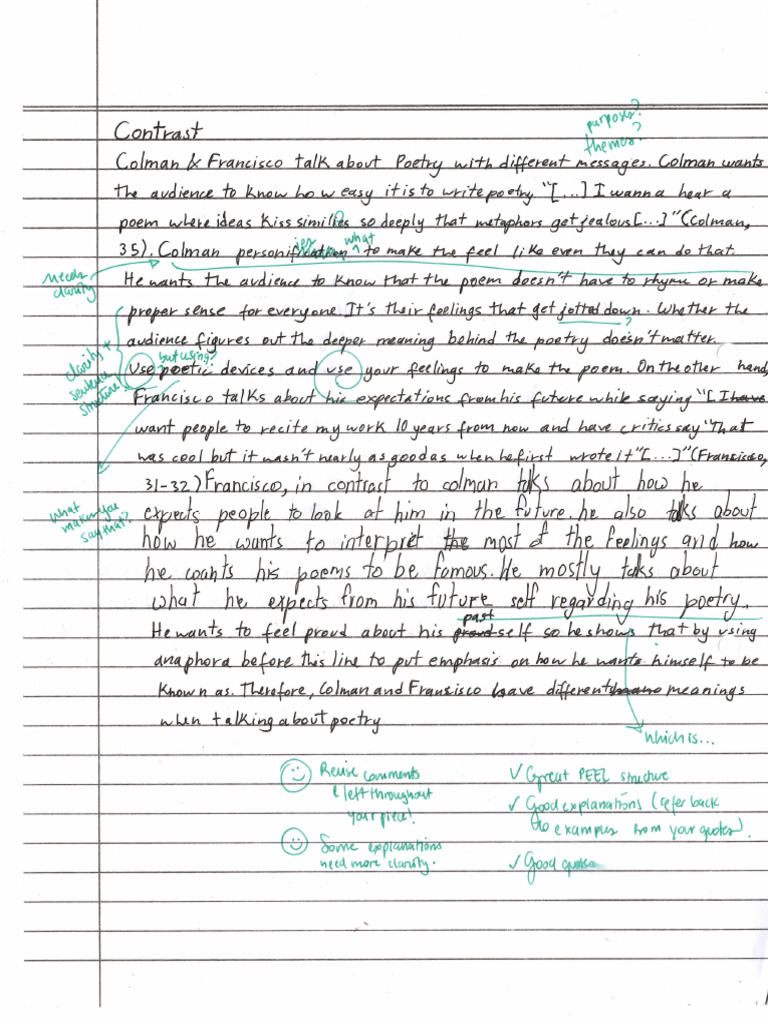 Contrast
purposes?
themes?
Colman & Francisco talk about Poetry with different messages. Colman wants
the audience to know how easy it is to write poetry "[...] I wanna hear a
poem where ideas kiss similies so deeply that metaphors get jealous [...]" (Colman,
35). Colman personification what to make the feel like even they can do that.
needs
clarity
He wants the audience to know that the poem doesn't have to rhyme or make
proper sense for everyone. It's their feelings that get jotted down. Whether the
audience figures out the deeper meaning behind the poetry doesn't matter.
clarity +
sentence
structure!
but using?
Use poetic devices and use your feelings to make the poem. On the other hand,
Francisco talks about his expectations from his future while saying "[I have
want people to recite my work 10 years from now and have critics say "That
was cool but it wasn't nearly as good as when he first wrote it" [...]" (Francisco,
31-32) Francisco, in contrast to colman talks about how he
what
makes you
say that?
expects people to look at him in the future. he also talks about
how he wants to interpret the most of the feelings and how
he wants his poems to be famous. He mostly talks about
what he expects from his future self regarding his poetry.
He wants to feel proud about his proud past self so he shows that by using
anaphora before this line to put emphasis on how he wants himself to be
known as. Therefore, Colman and Fransisco have different meanings
when talking about poetry
which is...
Revise comments
I left throughout
your piece!
Some explanations
need more clarity.
✓ Great PEEL structure
✓ Good explanations (refer back
to examples from your quotes).
✓ Good quotes